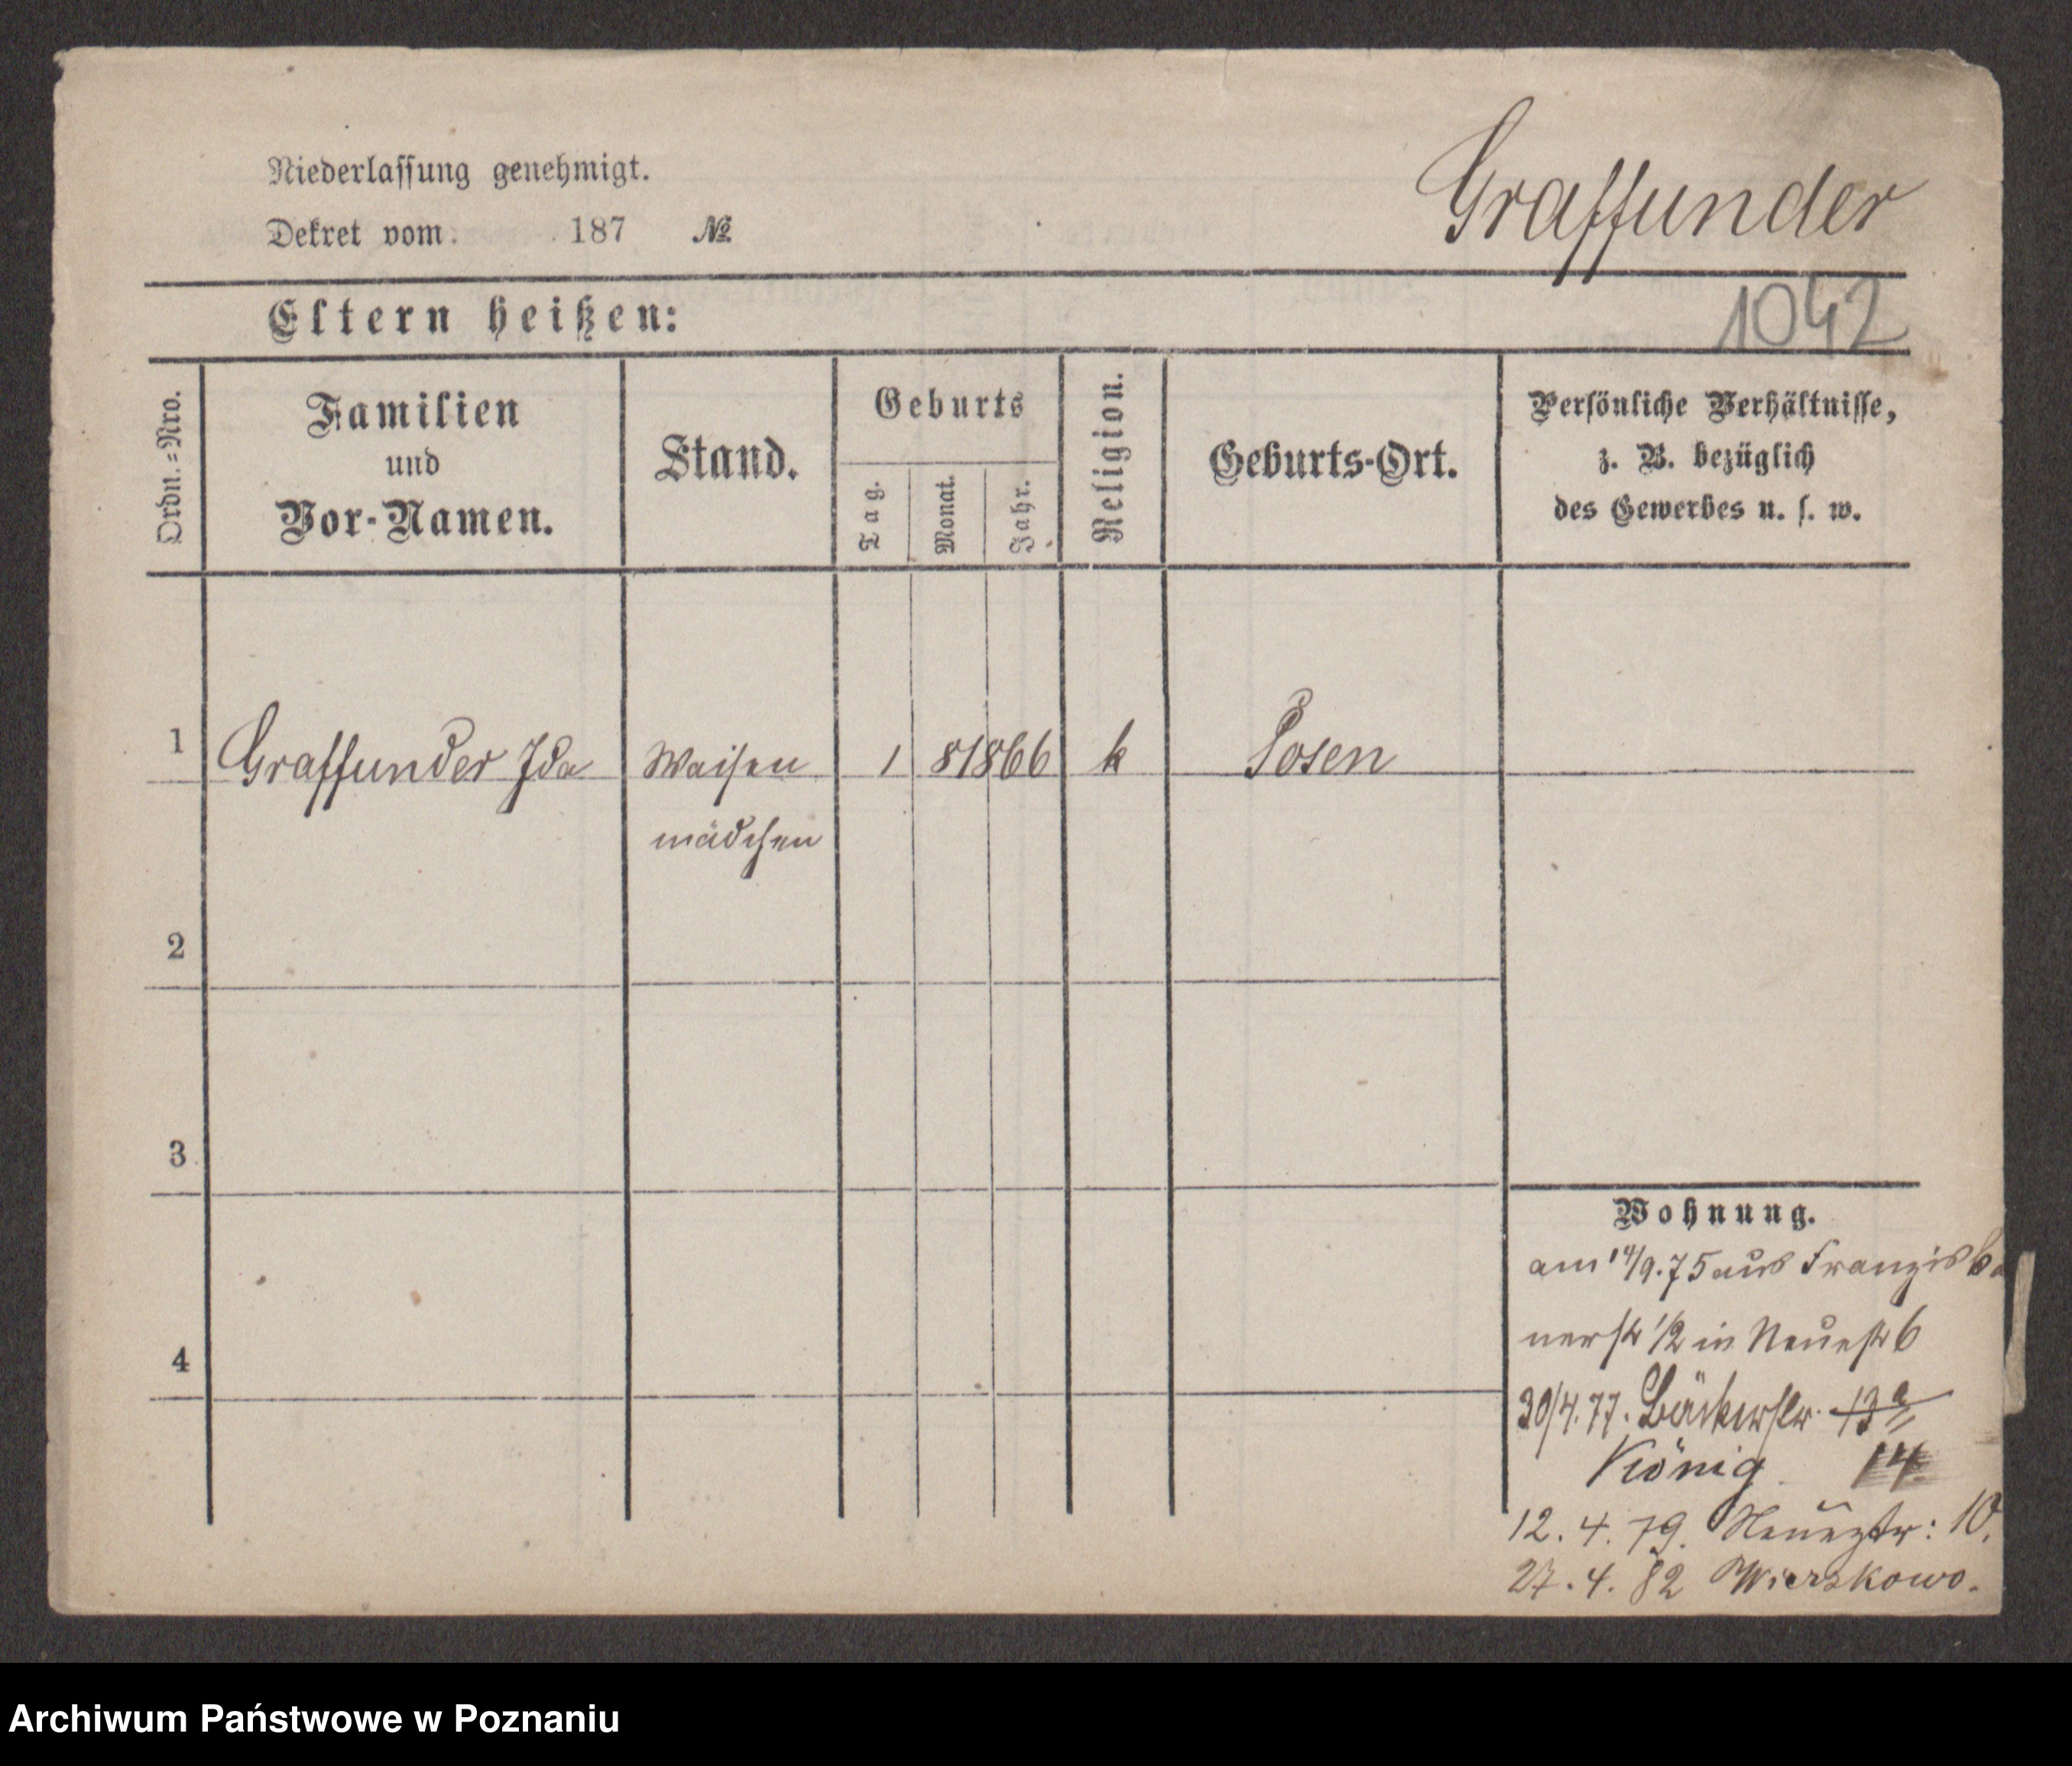 Niederlassung genehmigt.
Graffunder
Dekret vom 187 №
Eltern heißen:
1042
Ordn.=Nro.
Familien
und
Vor-Namen.
Stand.
Geburts
Tag.
Monat.
Jahr.
Religion.
Geburts-Ort.
Persönliche Verhältnisse,
z. B. bezüglich
des Gewerbes u. s. w.
1 Graffunder Ida Waisen 1 8 1866 k Posen
mädchen
2
3
4
Wohnung.
am 14/9.75 aus Franziska
nerstr 1/2 in Neuestr 6
30/4.77. Bäckerstr. 13a
König 14
12. 4. 79. Neuestr: 10.
27. 4. 82 Wierzkowo.
Archiwum Państwowe w Poznaniu